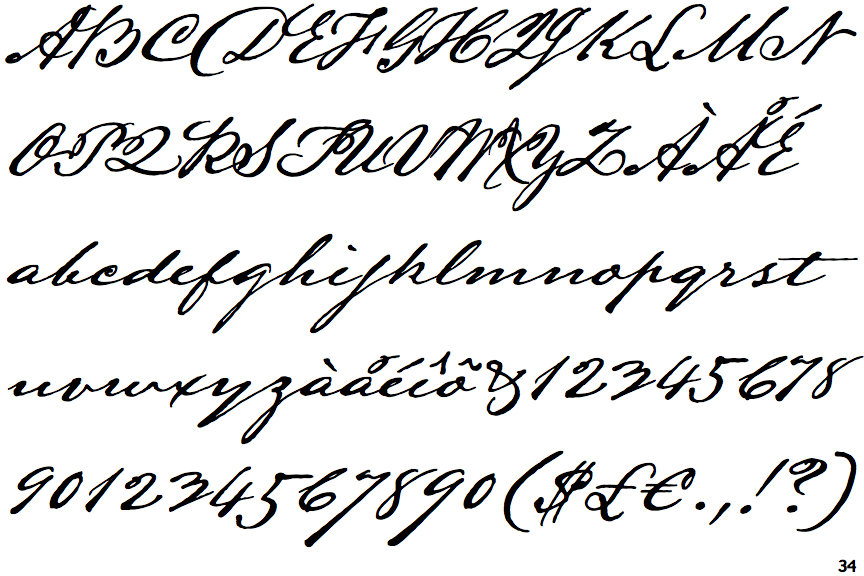 ABCDEFGHIJKLMN
OPQRSTUVWXYZÀÅÉ
abcdefghijklmnopqrst
uvwxyzàåéíõ&12345678
901234567890($£€.,!?)
34